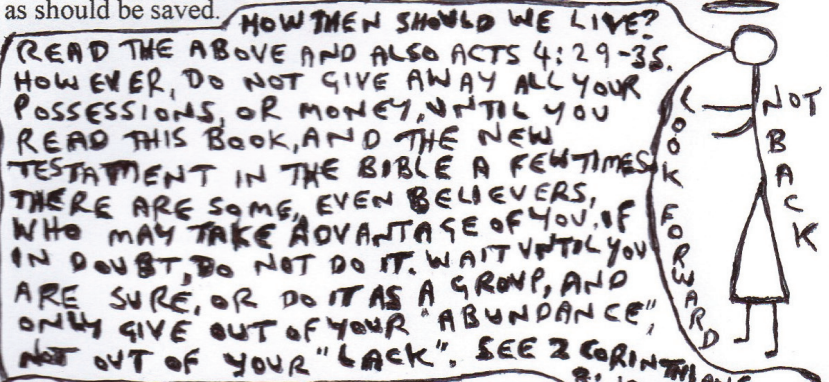 as should be saved.
HOW THEN SHOULD WE LIVE?
READ THE ABOVE AND ALSO ACTS 4:29-35.
HOWEVER, DO NOT GIVE AWAY ALL YOUR
POSSESSIONS, OR MONEY, UNTIL YOU
READ THIS BOOK, AND THE NEW
TESTAMENT IN THE BIBLE A FEW TIMES
THERE ARE SOME, EVEN BELIEVERS,
WHO MAY TAKE ADVANTAGE OF YOU. IF
IN DOUBT, DO NOT DO IT. WAIT UNTIL YOU
ARE SURE, OR DO IT AS A GROUP, AND
ONLY GIVE OUT OF YOUR "ABUNDANCE",
NOT OUT OF YOUR "LACK". SEE 2 CORINTHIANS
LOOK FORWARD
NOT BACK